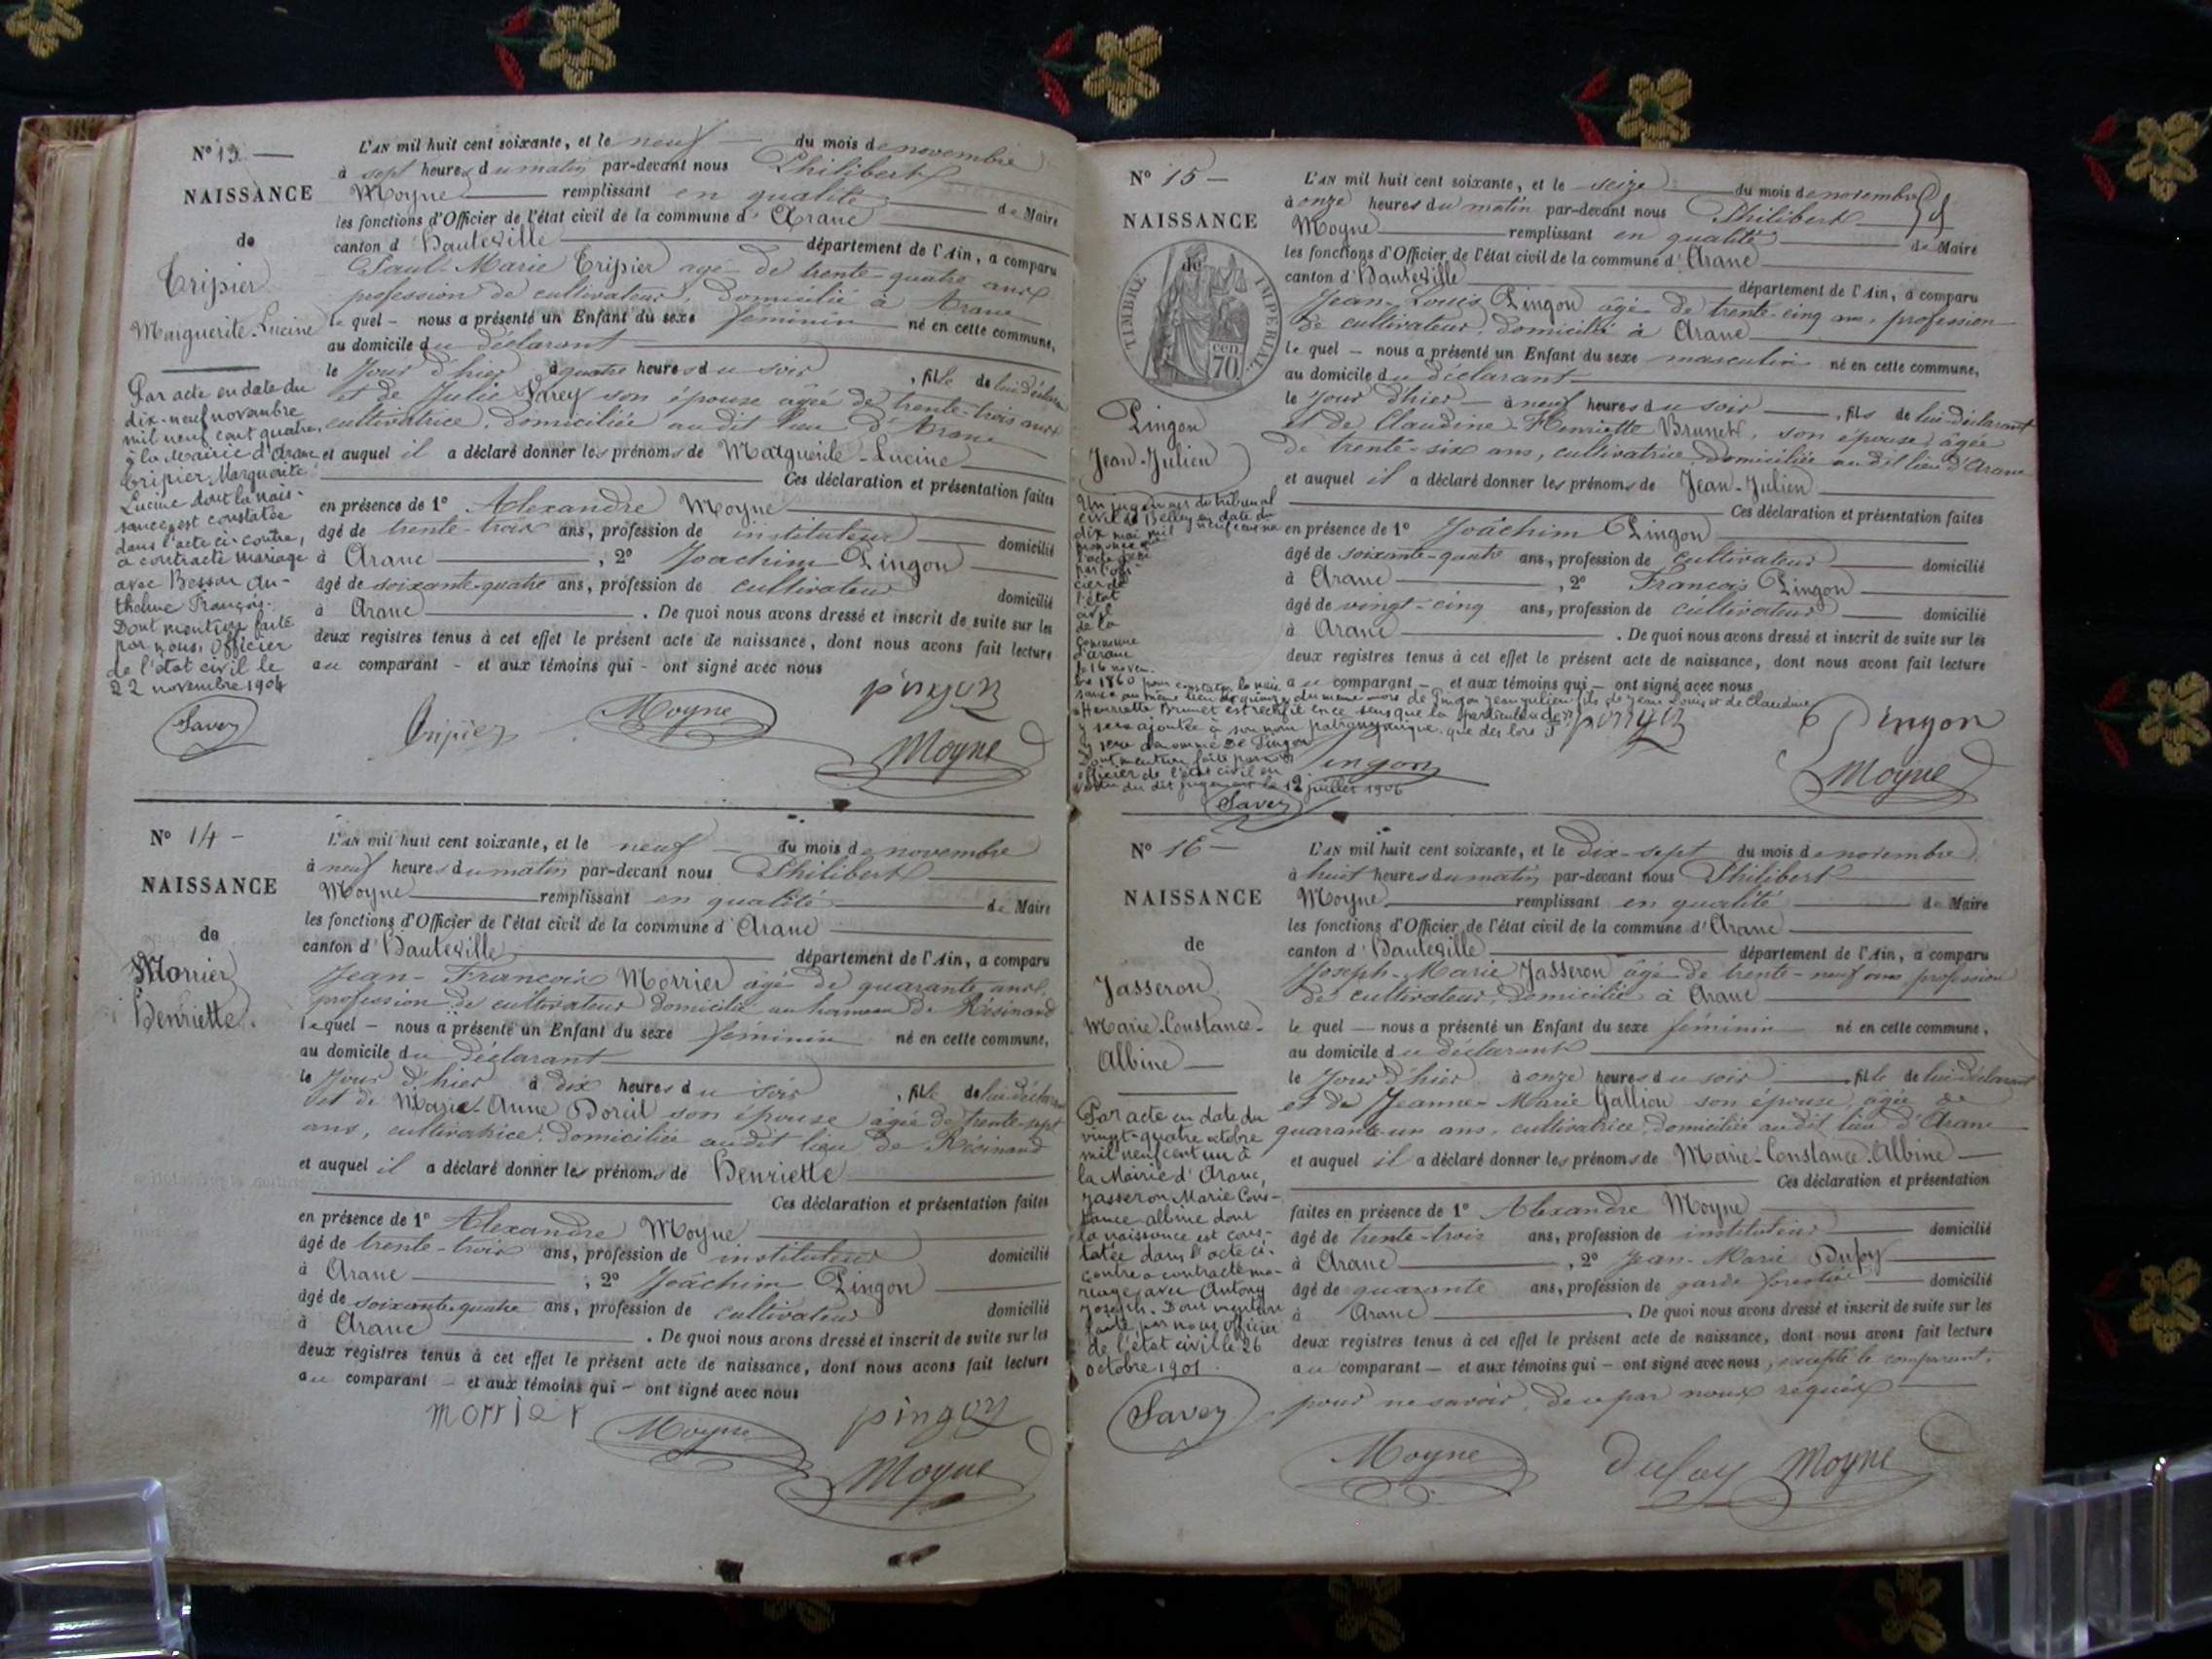 N° 13
NAISSANCE
de
Tripier
Marguerite-Lucine
Par acte en date du
dix-neuf novembre
mil neuf cent quatre,
à la Mairie d'Aranc
Tripier Marguerite
Lucine dont la nais-
sance est constatée
dans l'acte ci-contre,
a contracté mariage
avec Besson An-
thelme François.
Dont mention faite
par nous, officier
de l'état civil le
22 novembre 1904
Savey
L'AN mil huit cent soixante, et le neuf du mois de novembre
à sept heures du matin par-devant nous Philibert
Moyne remplissant en qualité de Maire
les fonctions d'Officier de l'état civil de la commune d'Aranc
canton d'Hauteville département de l'Ain, a comparu
Paul-Marie Tripier agé de trente-quatre ans
profession de cultivateur, domicilié à Aranc
le quel - nous a présenté un Enfant du sexe féminin né en cette commune,
au domicile du déclarant
le jour d'hier à quatre heures du soir, fille de lui déclarant
et de Julie Varey son épouse âgée de trente-trois ans
cultivatrice, domiciliée audit lieu d'Aranc
et auquel il a déclaré donner les prénoms de Marguerite-Lucine
Ces déclaration et présentation faites
en présence de 1° Alexandre Moyne
âgé de trente-trois ans, profession de instituteur domicilié
à Aranc, 2° Joachim Pingon
âgé de soixante-quatre ans, profession de cultivateur domicilié
à Aranc. De quoi nous avons dressé et inscrit de suite sur les
deux registres tenus à cet effet le présent acte de naissance, dont nous avons fait lecture
au comparant - et aux témoins qui - ont signé avec nous
pingon
Tripier Moyne
Moyne
N° 14
NAISSANCE
de
Morrier
Henriette.
L'AN mil huit cent soixante, et le neuf du mois de novembre
à neuf heures du matin par-devant nous Philibert
Moyne remplissant en qualité de Maire
les fonctions d'Officier de l'état civil de la commune d'Aranc
canton d'Hauteville département de l'Ain, a comparu
Jean-François Morrier âgé de quarante ans,
profession de cultivateur domicilié au hameau de Résinand
lequel - nous a présenté un Enfant du sexe féminin né en cette commune,
au domicile du déclarant
le jour d'hier à dix heures du soir, fille de lui déclarant
et de Marie-Anne son épouse âgée de trente-sept
ans, cultivatrice, domiciliée audit lieu de Résinand
et auquel il a déclaré donner les prénoms de Henriette
Ces déclaration et présentation faites
en présence de 1° Alexandre Moyne
âgé de trente-trois ans, profession de instituteur domicilié
à Aranc, 2° Joachim Pingon
âgé de soixante-quatre ans, profession de cultivateur domicilié
à Aranc. De quoi nous avons dressé et inscrit de suite sur les
deux registres tenus à cet effet le présent acte de naissance, dont nous avons fait lecture
au comparant - et aux témoins qui - ont signé avec nous
morrier Moyne pingon
Moyne
N° 15
NAISSANCE
de
TIMBRE IMPÉRIAL
cen.
70
Pingon
Jean-Julien
Un jugement du tribunal
civil de Belley en date du
dix mai mil neuf cent six
l'état
civil
de la
commune
d'Aranc
le 16 novem-
bre 1860 pour constater la nais-
sance au même lieu le quinze du même mois de Pingon Jean Julien fils de Jean Louis et de Claudine
Henriette Brunet est rectifié en ce sens que la particule "de"
y sera ajoutée à son nom patronymique que dès lors il
y sera dénommé De Pingon
Dont mention faite par nous
officier de l'état civil en
vertu du dit jugement le 12 juillet 1906
Savey
L'AN mil huit cent soixante, et le seize du mois de novembre
à onze heures du matin par-devant nous Philibert
Moyne remplissant en qualité de Maire
les fonctions d'Officier de l'état civil de la commune d'Aranc
canton d'Hauteville département de l'Ain, a comparu
Jean-Louis Pingon âgé de trente-cinq ans, profession
de cultivateur, domicilié à Aranc
le quel - nous a présenté un Enfant du sexe masculin né en cette commune,
au domicile du déclarant
le jour d'hier à neuf heures du soir, fils de lui déclarant
et de Claudine-Henriette Brunet, son épouse, âgée
de trente-six ans, cultivatrice, domiciliée audit lieu d'Aranc
et auquel il a déclaré donner les prénoms de Jean-Julien
Ces déclaration et présentation faites
en présence de 1° Joâchim Pingon
âgé de soixante-quatre ans, profession de cultivateur domicilié
à Aranc, 2° François Pingon
âgé de vingt-cinq ans, profession de cultivateur domicilié
à Aranc. De quoi nous avons dressé et inscrit de suite sur les
deux registres tenus à cet effet le présent acte de naissance, dont nous avons fait lecture
au comparant - et aux témoins qui - ont signé avec nous
pingon Pingon
Pingon Moyne
N° 16
NAISSANCE
de
Jasseron
Marie-Constance-
Albine
Par acte en date du
vingt-quatre octobre
mil neuf cent un à
la Mairie d'Aranc,
Jasseron Marie Cons-
tance albine dont
la naissance est cons-
tatée dans l'acte ci-
contre a contracté ma-
riage avec Antony
Joseph. Dont mention
faite par nous officier
de l'état civil le 26
octobre 1901.
Savey
L'AN mil huit cent soixante, et le dix-sept du mois de novembre
à huit heures du matin par-devant nous Philibert
Moyne remplissant en qualité de Maire
les fonctions d'Officier de l'état civil de la commune d'Aranc
canton d'Hauteville département de l'Ain, a comparu
Joseph-Marie Jasseron âgé de trente-neuf ans, profession
de cultivateur, domicilié à Aranc
le quel - nous a présenté un Enfant du sexe féminin né en cette commune,
au domicile du déclarant
le jour d'hier à onze heures du soir fille de lui déclarant
et de Jeanne-Marie Gallion son épouse, âgée de
quarante-un ans, cultivatrice, domiciliée audit lieu d'Aranc
et auquel il a déclaré donner les prénoms de Marie-Constance-Albine
Ces déclaration et présentation
faites en présence de 1° Alexandre Moyne
âgé de trente-trois ans, profession de instituteur domicilié
à Aranc, 2° Jean-Marie Dufoy
âgé de quarante ans, profession de garde forestier domicilié
à Aranc. De quoi nous avons dressé et inscrit de suite sur les
deux registres tenus à cet effet le présent acte de naissance, dont nous avons fait lecture
au comparant - et aux témoins qui - ont signé avec nous, excepté le comparant,
pour ne savoir, de ce par nous requis
Moyne Dufoy Moyne